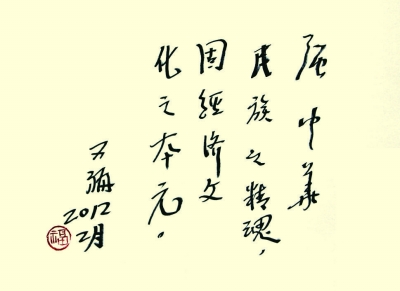 中華
民族之精魂，
固經濟文
化之本元。
2012
2月